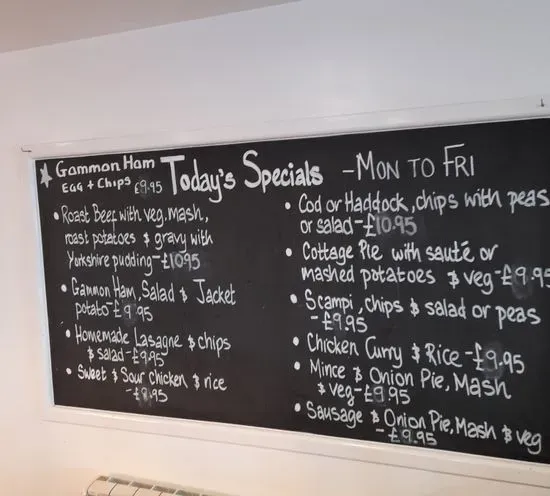 Gammon Ham
Egg + Chips £9.95
Today's Specials - Mon to Fri
• Roast Beef with veg, mash,
roast potatoes & gravy with
Yorkshire pudding - £10.95
• Gammon Ham, Salad & Jacket
potato - £9.95
• Homemade Lasagne & chips
& salad - £9.95
• Sweet & Sour Chicken & rice
- £9.95
• Cod or Haddock, chips with peas
or salad - £10.95
• Cottage Pie with sauté or
mashed potatoes & veg - £9.95
• Scampi, chips & salad or peas
- £9.95
• Chicken Curry & Rice - £9.95
• Mince & Onion Pie, Mash
& veg - £9.95
• Sausage & Onion Pie, Mash & veg
- £9.95